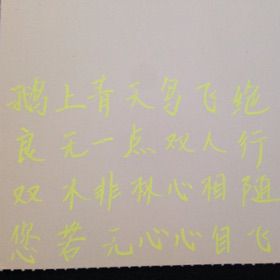 鹅上青天鸟飞绝
良无一点双人行
双木非林心相随
您若无心心自飞